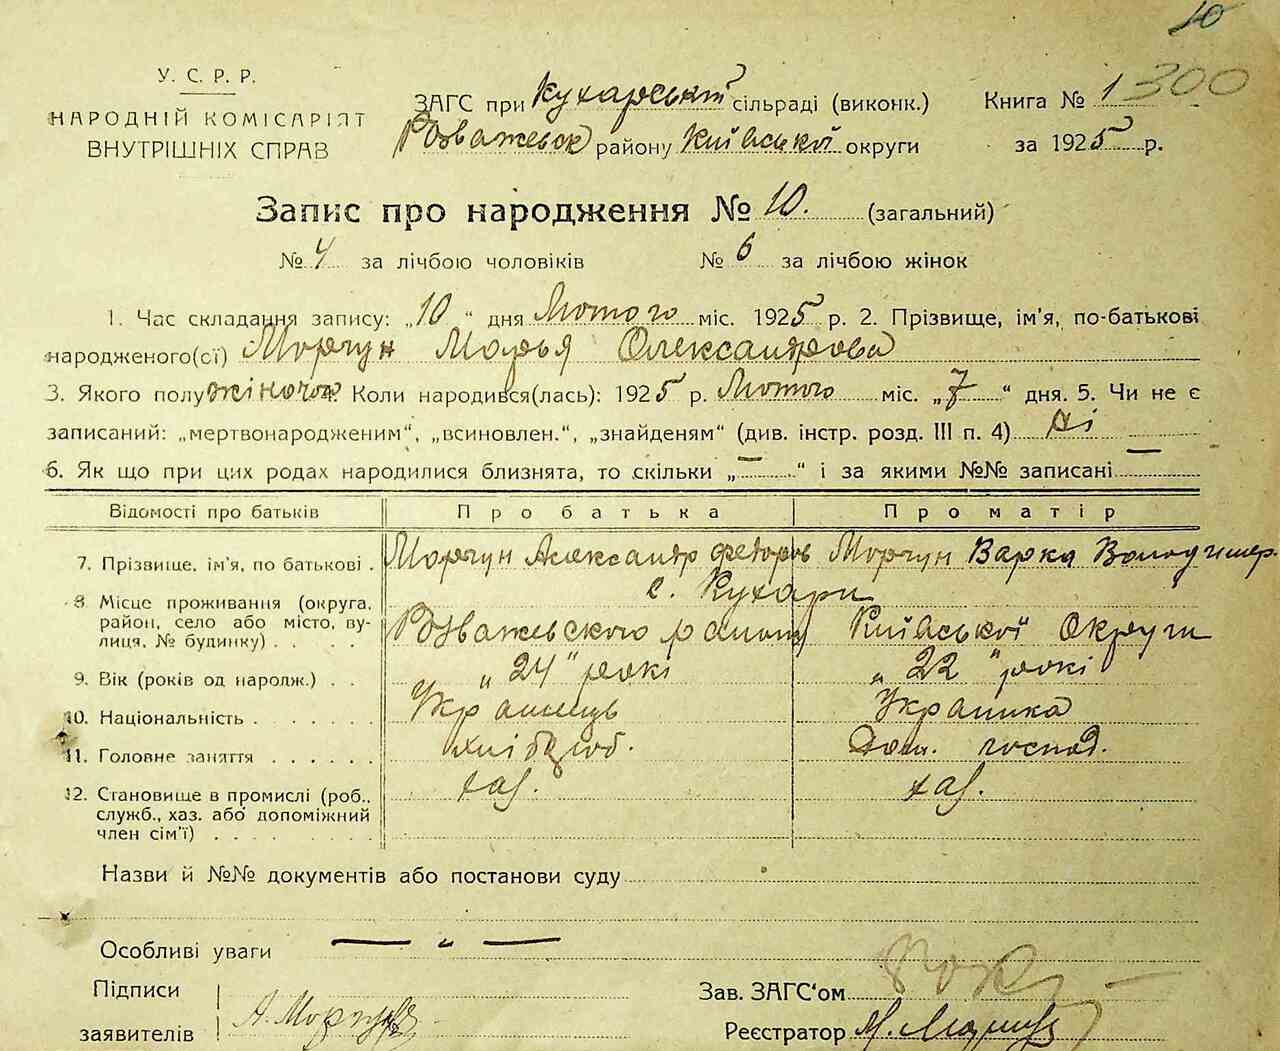 10
У. С. Р. Р.
НАРОДНІЙ КОМІСАРІЯТ
ВНУТРІШНІХ СПРАВ
ЗАГС при Кухарській сільраді (виконк.)
Розважевск району Київської округи
Книга № 1 300
за 1925 р.
Запис про народження № 10. (загальний)
№ 4 за лічбою чоловіків № 6 за лічбою жінок
1. Час складання запису: „10“ дня Лютого міс. 1925 р. 2. Прізвище, ім'я, по-батькові
народженого(сї) Моргун Марья Олександрова
3. Якого полу жіночог Коли народився(лась): 1925 р. Лютого міс. „7“ дня. 5. Чи не є
записаний: „мертвонародженим“, „всиновлен.“, „знайденям“ (див. інстр. розд. III п. 4) Ні
6. Як що при цих родах народилися близнята, то скільки „—“ і за якими №№ записані —
Відомості про батьків Про батька Про матір
7. Прізвище, ім'я, по батькові . Моргун Александр Федоров Моргун Варка Володимер.
8. Місце проживання (округа, район, село або місто, вулиця, № будинку) . . . . с. Кухари
Розважевского району Київської Округи
9. Вік (років од народж.) . . „24“ рокі „22“ рокі
10. Національність . . . . . . Українець Українка
11. Головне заняття . . . . . . хлібороб. Дом. господ.
12. Становище в промислі (роб., хаз. хаз.
служб., хаз. або допоміжний
член сім'ї) . . . . . . . .
Назви й №№ документів або постанови суду
Особливі уваги — „ —
Підписи
заявителів А. Моргун
Зав. ЗАГС‘ом
Реєстратор